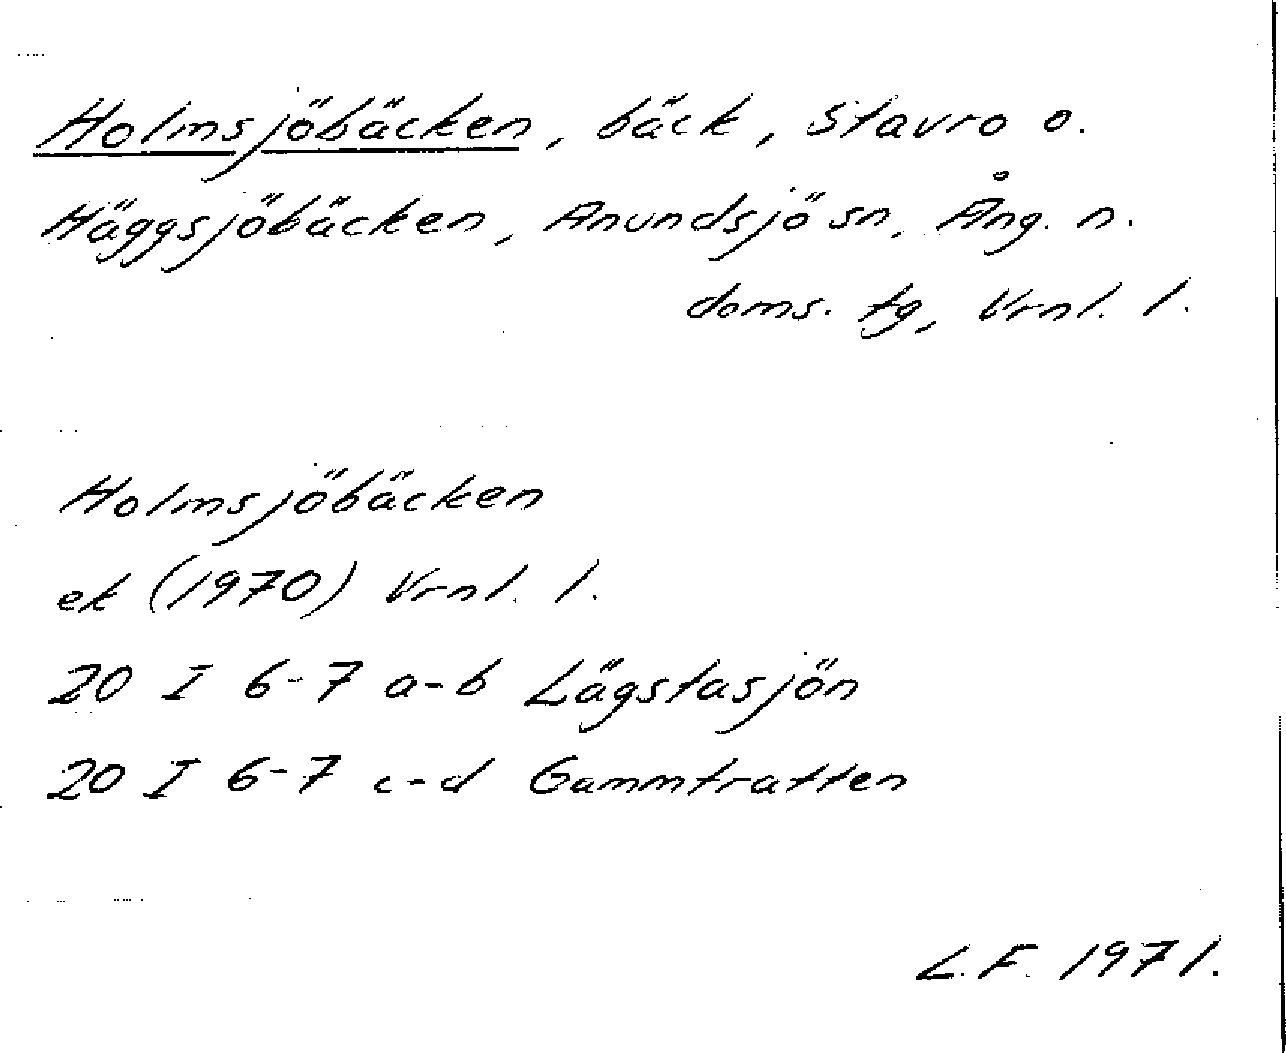 Holmsjöbäcken, bäck, Stavro o.
Häggsjöbäcken, Anundsjö sn, Ång. n.
doms. tg, Vrnl. l.
Holmsjöbäcken
ek (1970) Vrnl. l.
20 I 6-7 a-b Lägstasjön
20 I 6-7 c-d Gammtratten
L.F. 1971.